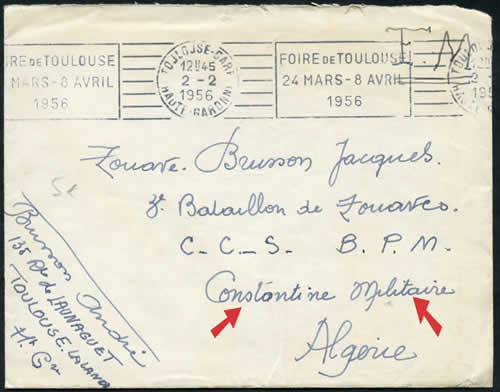 IRE DE TOULOUSE
MARS-8 AVRIL
1956
TOULOUSE-GARE
12H45
2-2
1956
HAUTE-GARONNE
FOIRE DE TOULOUSE
24 MARS-8 AVRIL
1956
F.M
Zouave. Brusson Jacques.
Bataillon de Zouaves.
C.C.S. B.P.M.
Constantine Militaire
Algérie
Brusson André
135 Rte de LAUNAGUET
TOULOUSE. LALANDE
Hte Gne